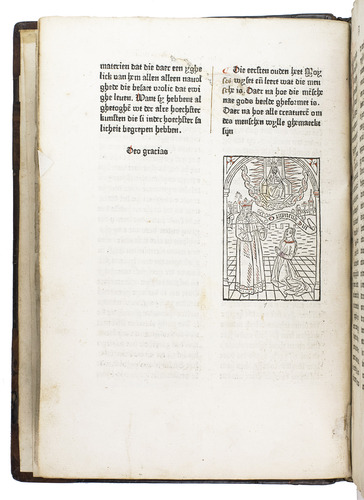 materien dat die daer een yghe
lick van hem allen alleen navol
ghede die besact vrolic dat ewi
ghe leuen. Want sy hebbent al
ghetoghē wt der alre hoechster
kunsten die si inder hoechster sa
licheit begrepen hebben.
Deo gracias
Die eersten ouden heet Moy
ses eñ leert wat die men
sche is. Daer na hoe die mēsche
nae gods beelde ghesormet is.
Daer na hoe alle creaturē om
des menschen wylle ghemaect
syn